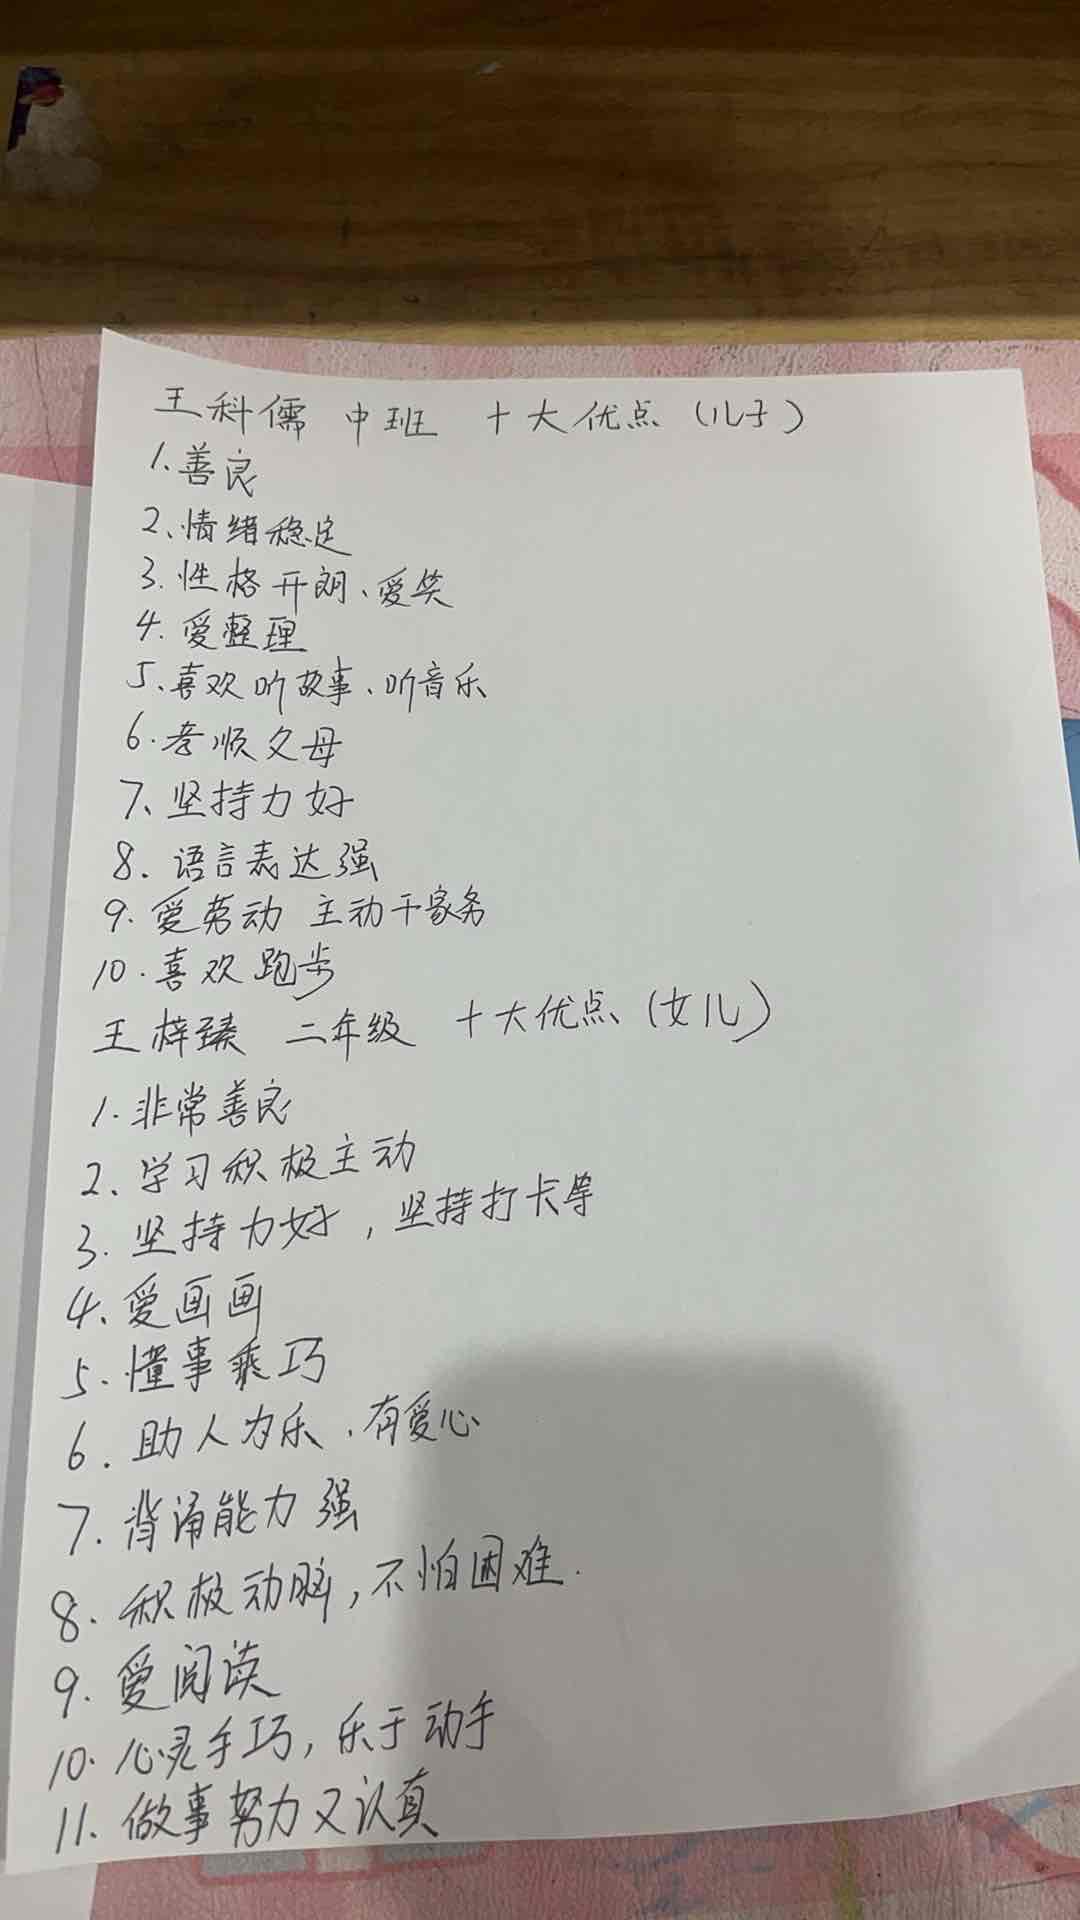 王科儒 中班 十大优点（儿子）
1.善良
2、情绪稳定
3.性格开朗、爱笑
4.爱整理
5、喜欢听故事、听音乐
6.孝顺父母
7、坚持力好
8.语言表达强
9.爱劳动 主动干家务
10.喜欢跑步
王梓臻 二年级 十大优点（女儿）
1.非常善良
2、学习积极主动
3.坚持力好，坚持打卡等
4、爱画画
5.懂事乖巧
6.助人为乐、有爱心
7.背诵能力强
8.积极动脑，不怕困难.
9.爱阅读
10.心灵手巧，乐于动手
11.做事努力又认真